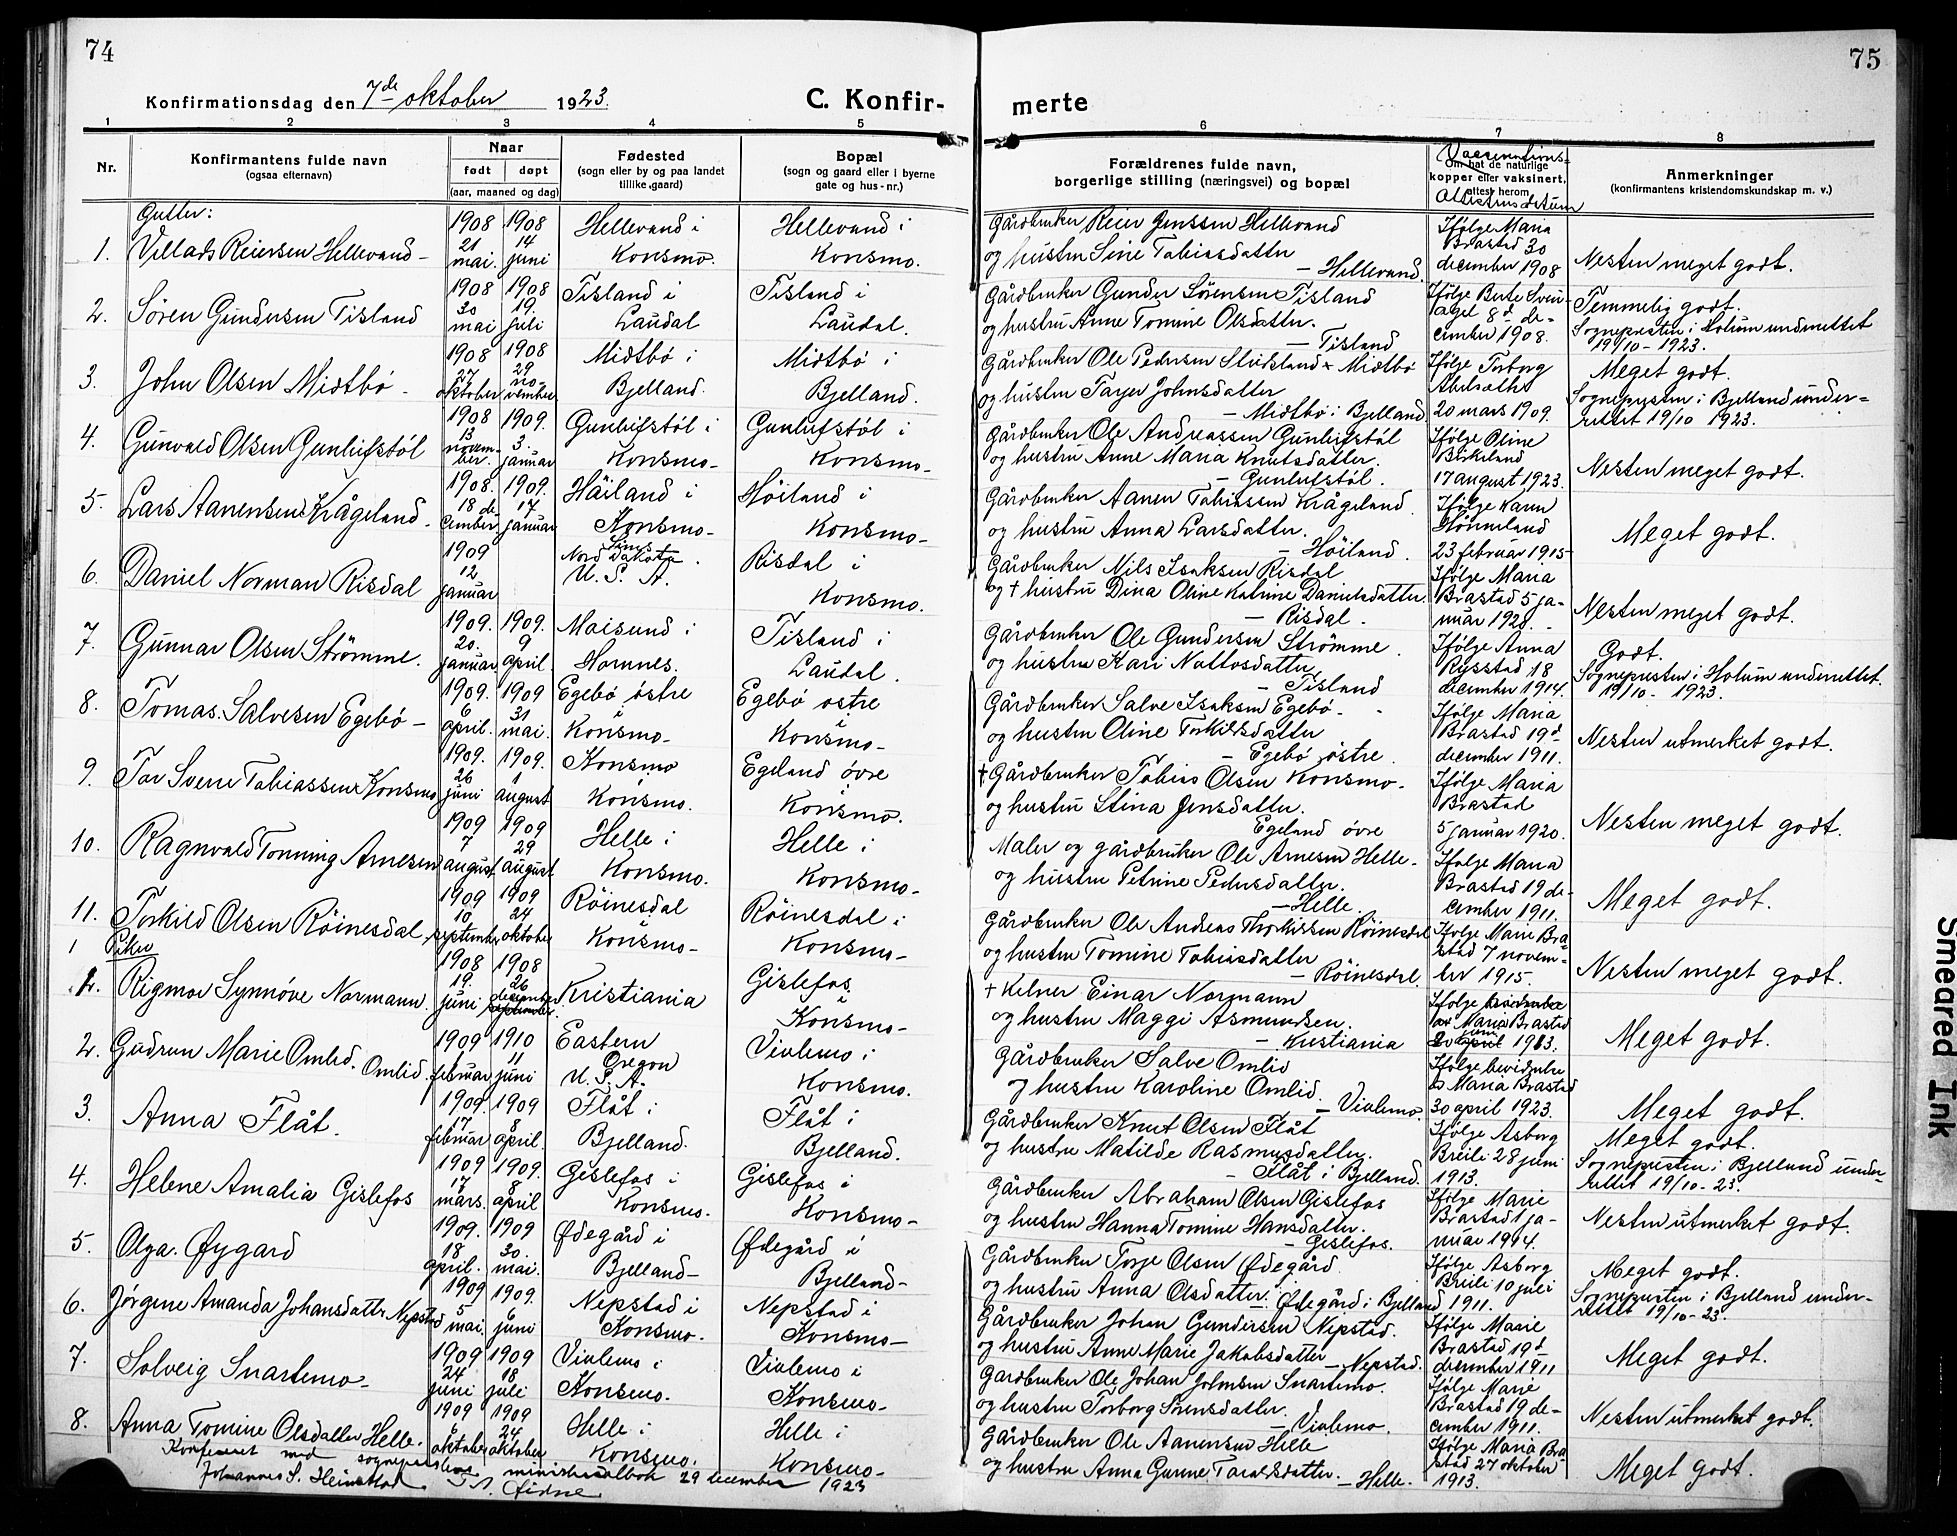 74
Konfirmationsdag den 7de oktober 1923.
C. Konfir-
1 2 3 4 5
Nr.
Konfirmantens fulde navn
(ogsaa efternavn)
Naar
født døpt
(aar, maaned og dag)
Fødested
(sogn eller by og paa landet
tillike gaard)
Bopæl
(sogn og gaard eller i byerne
gate og hus-nr.)
Gutter:
1. Villads Reiersen Hellevand – 1908 21 mai. 1908 14 juni Hellevand i Konsmo. Hellevand i Konsmo.
2. Søren Gundersen Tisland 1908 30 mai 1908 19. juli Tisland i Laudal Tisland i Laudal.
3. John Olsen Midtbø – 1908 27 oktober 1908 29 november Midtbø i Bjelland. Midtbø i Bjelland.
4. Gunvald Olsen Gunleifstøl 1908 13 november. 1909. 3. januar Gunleifstøl i Konsmo– Gunleifstøl i Konsmo–
5. Lars Aanensen Krågeland. 1908. 18 december 1909. 17 januar Høiland i Konsmo– Høiland i Konsmo–
6. Daniel Norman Risdal 1909 12 januar Nord Dakota. U. S. A. Risdal i Konsmo.
7. Gunnar Olsen Strømme. 1909. 20. januar 1909. 9 april. Moisund i Hornnes. Tisland i Laudal.
8. Tomas Salvesen Egebø – 1909. 6 april. 1909 31 mai. Egebø østre i Konsmo– Egebø østre i Konsmo–
9. Tor Sverre Tobiassen Konsmo 1909. 26 juni 1909. 1 august Konsmo i Konsmo. Egeland øvre i Konsmo.
10. Ragnvald Tonning Arnesen 1909 7 august 1909 29 august Helle i Konsmo. Helle i Konsmo–
11. Torkild Olsen Röinesdal 1909 10. september 1909 24 oktober Röinesdal i Konsmo– Röinesdal i Konsmo–
Piker
1. Rigmor Synnöve Normann. 1908 19. juni 1908 26 september Kristiania Gislefos i Konsmo–
2. Gudrun Marie Omlid. Omlid. 1909 februar 1910 11 juni Eastern Oregon U. S. A. Vivlemo i Konsmo.
3. Anna Flåt. 1909. 17 februar 1909 8 april. Flåt i Bjelland. Flåt i Bjelland.
4. Helene Amalia Gislefos 1909 17 mars. 1909. 8 april Gislefos i Konsmo. Gislefos i Konsmo–
5. Olga. Øygard 1909. 18 april. 1909 30. mai. Ødegård i Bjelland– Ødegård i Bjelland–
6. Jørgine Amanda Johansdatter Nepstad 1909 5 mai. 1909. 6 juni Nepstad i Konsmo. Nepstad i Konsmo–
7. Solveig Snartemo– 1909 24 juni 1909 18 juli Vivlemo i Konsmo. Vivlemo i Konsmo–
8. Anna Tomine Olsdatter Helle. 1909 oktober 1909 24 oktober Helle i Konsmo. Helle i Konsmo–
Konfereret med sogneprestens ministerialbok 29 december 1923
Johannes S. Heimstad
75
merte
6 7 8
Forældrenes fulde navn,
borgerlige stilling (næringsvei) og bopæl
Vaccinations-
Om hat de naturlige
kopper eller vaksinert,
attest herom
attestens datum
Anmerkninger
(konfirmantens kristendomskundskap m. v.)
Gårdbruker Reier Jenssen Hellevand
og hustru Sine Tobiasdatter
– Hellevand.
Ifølge Maria Brastad 30 december 1908
Nesten meget godt.
Gårdbruker Gunder Sørensen Tisland
og hustru Anne Tomine Olsdatter.
– Tisland
Ifølge Berte Sveindagel 8d. december 1908.
Temmelig godt.
Sognepresten i Holum underrettet
19/10 - 1923.
Gårdbruker Ole Pedersen Stridsland x Midtbø
og hustru Tarjer Johnsdatter
– Midtbø i Bjelland
Ifølge Torborg Abelsæthe 20 mars 1909.
Meget godt.
Sognepresten i Bjelland under-
rettet 19/10 1923.
Gårdbruker Ole Andreassen Gunleifstøl
og hustru Anne Maria Knutsdatter.
– Gunleifstøl.
Ifølge Oline Birkeland 17 august 1923.
Nesten meget godt.
Gårdbruker Aanen Tobiassen Krågeland
og hustru Anna Larsdatter.
– Höiland.
Ifølge Karen 23 februar 1915–
Meget godt.
Gårdbruker Nils Isaksen Risdal
og † hustru Dina Oline Katrine Danielsdatter.
– Risdal –
Ifølge Maria Brastad 5 januar 1920.
Nesten meget godt.
Gårdbruker Ole Gundersen Strömme.
og hustru Kari Nottosdatter
– Tisland
Ifølge Anna Rysstad 18 december 1914.
Godt.
Sognepresten i Holum underrettet.
19/10 - 1923.
Gårdbruker Salve Isaksen Egebø–
og hustru Oline Torkildsdatter
– Egebø østre.
Ifølge Maria Brastad 19d. december 1911.
Nesten utmerket godt.
† Gårdbruker Tobias Olsen Konsmo–
og hustru Stina Jensdatter.
Egeland øvre
Ifølge Maria Brastad 5 januar 1920.
Nesten meget godt.
Maler og gårdbruker Ole Arnesen Helle–
og hustru Petrine Pedersdatter.
– Helle.
Ifølge Maria Brastad 19 december 1911.
Meget godt.
Gårdbruker Ole Andreas Thorkildsen Röinesdal
og hustru Tomine Tobiasdatter
– Röinesdal.
Ifølge Marie Brastad 7 november 1915.
Nesten meget godt.
† Kelner Einar Normann
og hustru Maggi Asmundsen.
– Kristiania
Ifølge Maria Brastad 1913.
Meget godt.
Gårdbruker Salve Omlid
og hustru Karoline Omlid.
– Vivlemo
Ifølge bevidnelse av Maria Brastad 30 april 1923.
Meget godt.
Gårdbruker Knut Olsen Flåt
og hustru Matilde Rasmusdatter.
– Flåt i Bjelland.
Ifølge Asborg Breili 28 juni 1913.
Meget godt.
Sognepresten i Bjelland under-
rettet 19/10 - 23.
Gårdbruker Abraham Olsen Gislefos
og hustru Hanna Tomine Hansdatter.
– Gislefos.
Ifølge Marie Brastad 1 januar 1914.
Nesten utmerket godt.
Gårdbruker Torje Olsen Ødegård.
og hustru Anna Olsdatter. Ødegård i Bjelland
Ifølge Asborg Breili 10 juli 1911.
Meget godt.
Sognepresten i Bjelland under-
rettet 19/10 - 23.
Gårdbruker Johan Gundersen Nepstad.
og hustru Anne Marie Jakobsdatter
– Nepstad.
Ifølge Marie Brastad 19d december 1911
Meget godt.
Gårdbruker Ole Johan Johnsen Snartemo.
og hustru Torborg Sørensdatter.
– Vivlemo.
Ifølge Marie Brastad 19 december 1911.
Nesten utmerket godt.
Gårdbruker Ole Aanensen Helle
og hustru Anna Gurine Taraldsdatter.
– Helle.
Ifølge Maria Brastad 27 oktober 1913.
Meget godt.
Smeared Ink